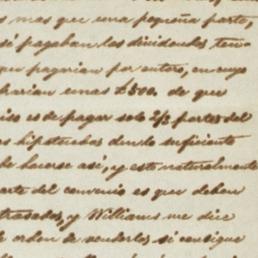 s mas que una pequeña parte,
si pagaban los dividendos ten-
que pagarian por entero, en cuyo
harian unas £500. de que
iso es de pagar solo 2/3 partes del
s hipotecadas dando suficiente
de hacerse asi, y esto naturalmente
arte del convenio es que deben
trasados, y Williams me dice
e orden de venderlos si consigue